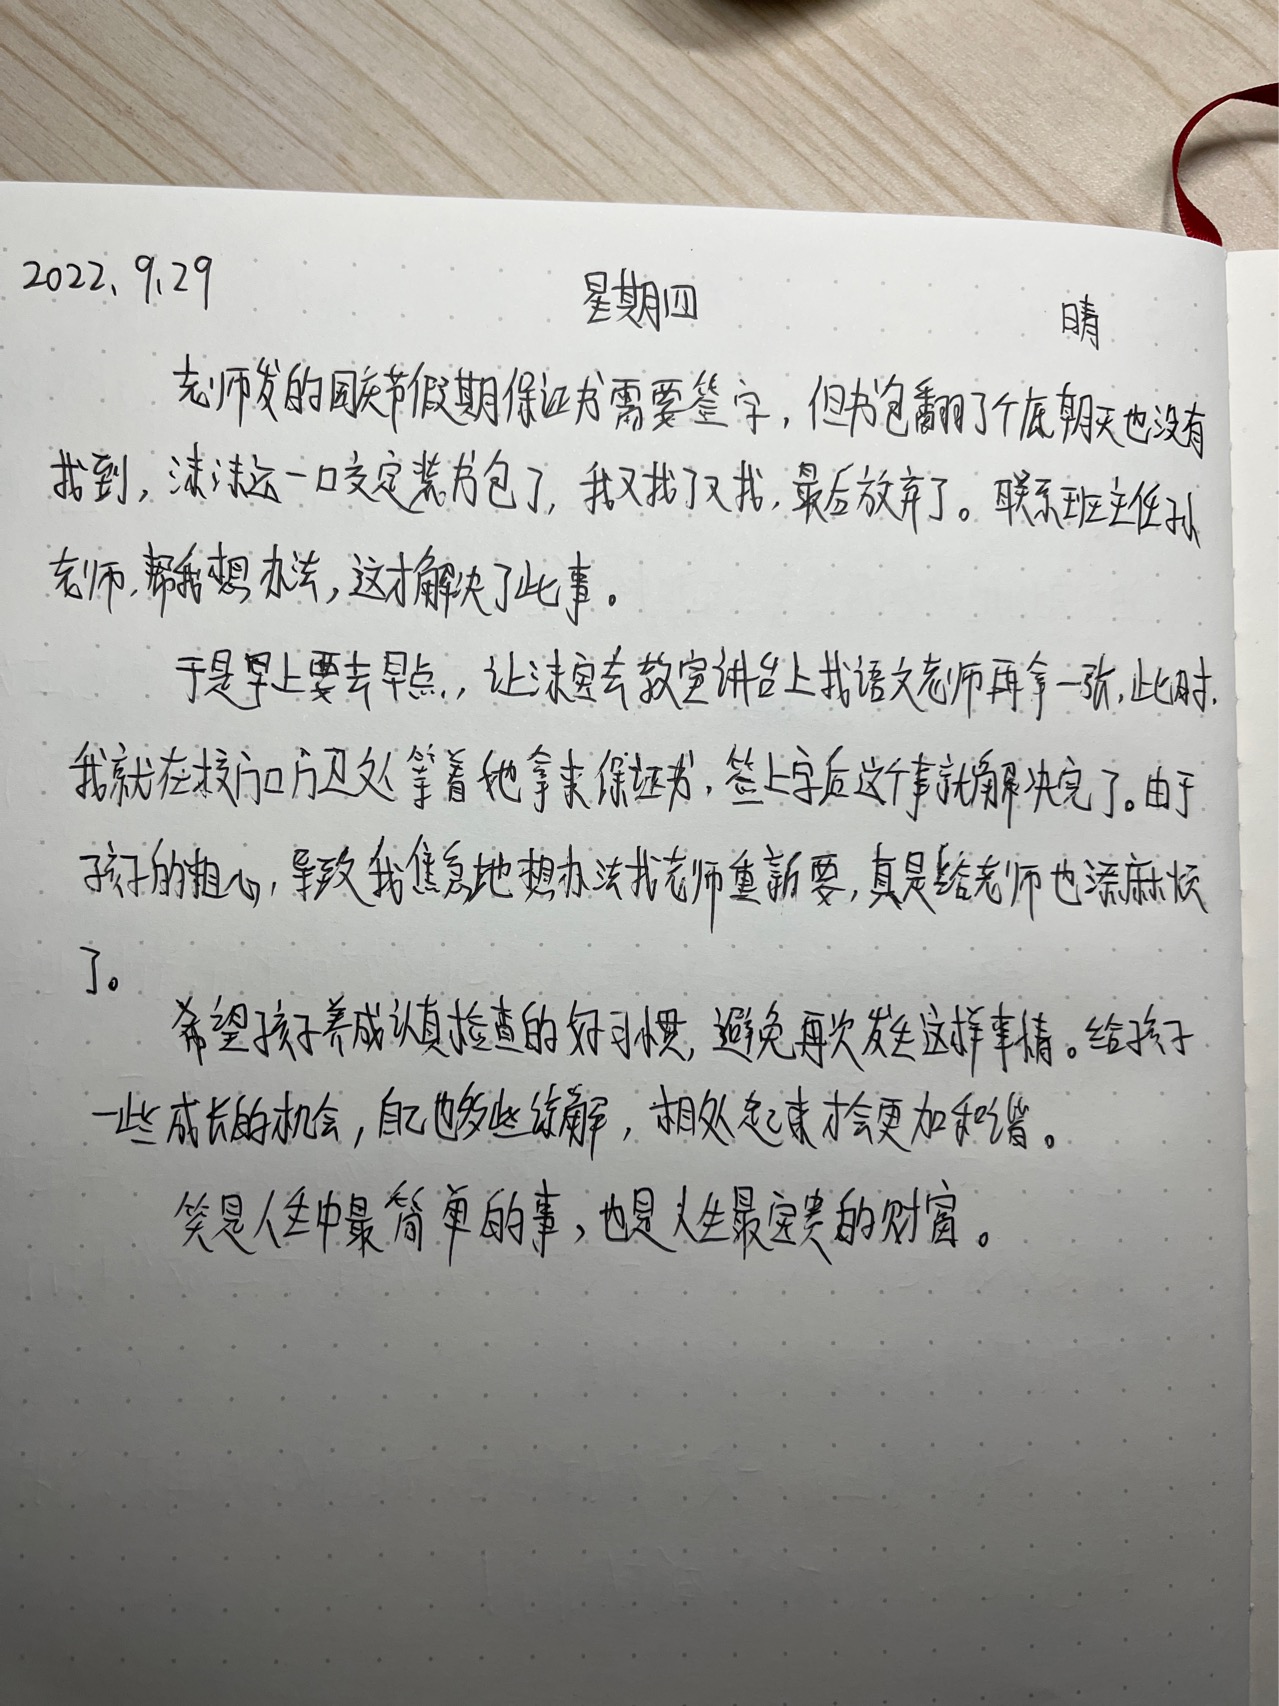 2022.9.29 星期四 晴
老师发的国庆节假期保证书需要签字，但书包翻了个底朝天也没有
找到，沫沫还一口咬定装书包了，我又找了又找，最后放弃了。联系班主任孙
老师，帮我想办法，这才解决了此事。
于是早上要去早点，让沫去教室讲台上找语文老师再拿一张，此时，
我就在校门口门卫处等着她拿来保证书，签上字后这个事就解决完了。由于
孩子的粗心，导致我焦急地想办法找老师重新要，真是给老师也添麻烦
了。
希望孩子养成认真检查的好习惯，避免再次发生这样事情。给孩子
一些成长的机会，自己也多些谅解，相处起来才会更加和谐。
笑是人生中最简单的事，也是人生最宝贵的财富。